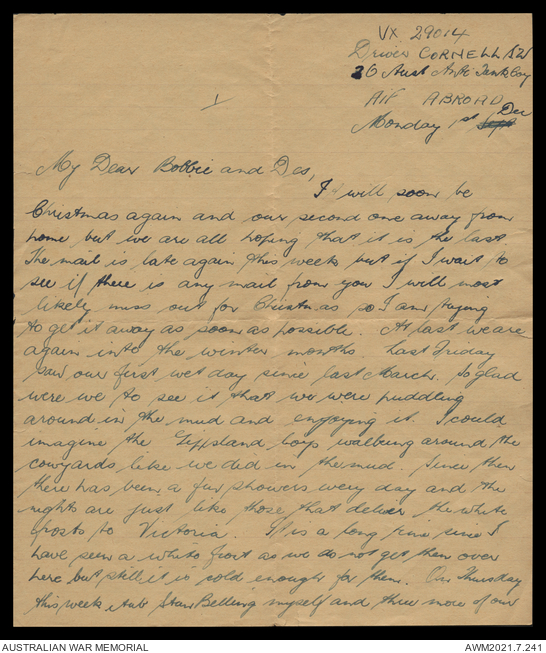 VX 29014
Driver CORNELL
26 Aust Anti Tank Coy
AIF ABROAD
Monday 1st Dec
1
My Dear Bobbie and Des,
It will soon be
Christmas again and our second one away from
home but we are all hoping that it is the last
The mail is late again this week but if I wait to
see if there is any mail from you I will most
likely miss out for Christmas so I am trying
to get it away as soon as possible. At last we are
again into the winter months. Last Friday
saw our first wet day since last March. So glad
were we to see it that we were puddling
around in the mud and enjoying it. I could
imagine the Gippsland boys walking around the
cowyards like we did in the mud. Since then
there has been a few showers every day and the
nights are just like those that deliver the white
frosts to Victoria. It is a long time since I
have seen a white frost as we do not get them over
here but still it is cold enough for them. On Thursday
this week Stan Belling myself and three more of our
AUSTRALIAN WAR MEMORIAL
AWM2021.7.241